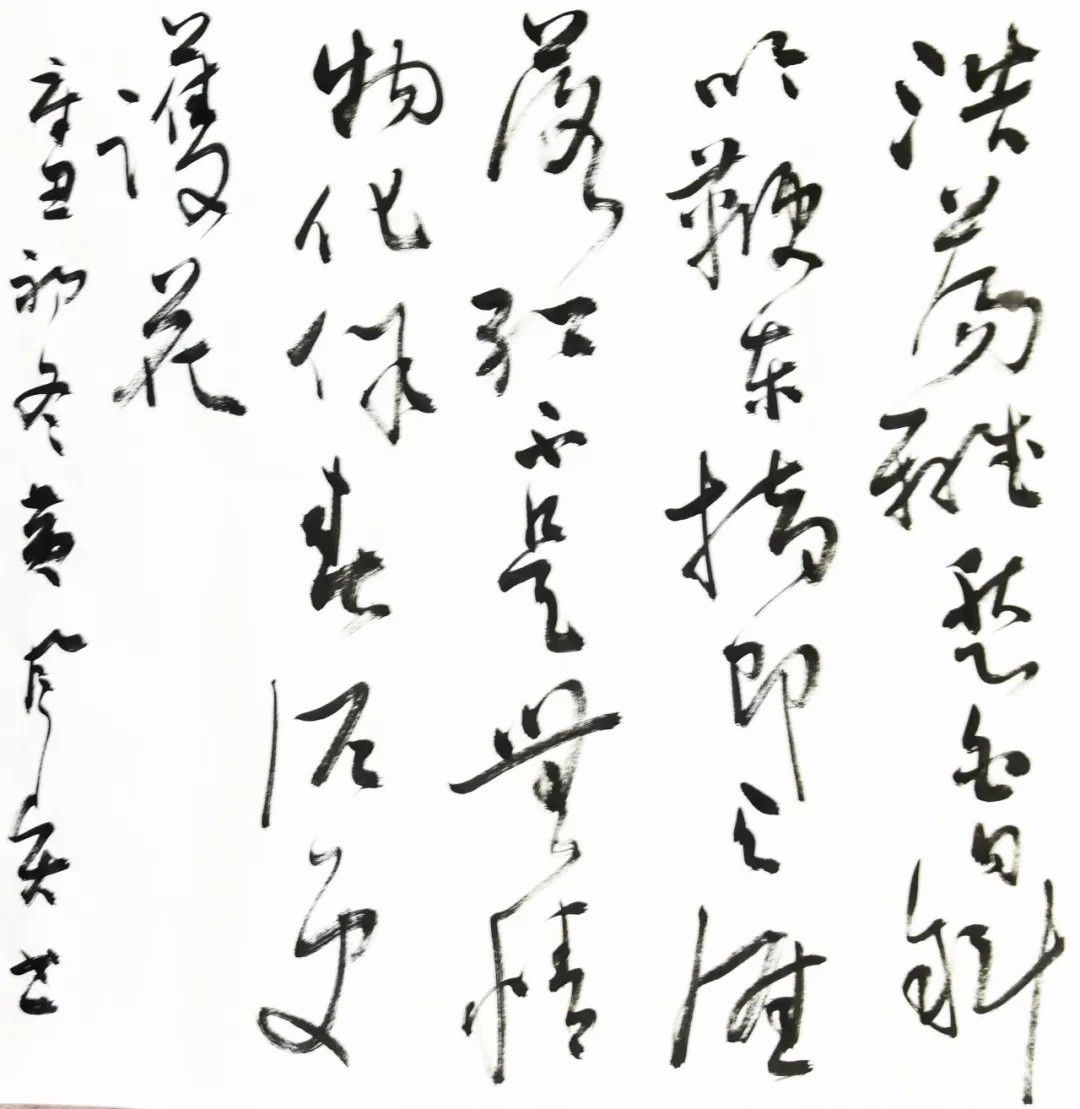 浩蕩離愁白日斜
吟鞭東指即天涯
落紅不是無情
物化作春泥更
護花
辛丑初冬黄書